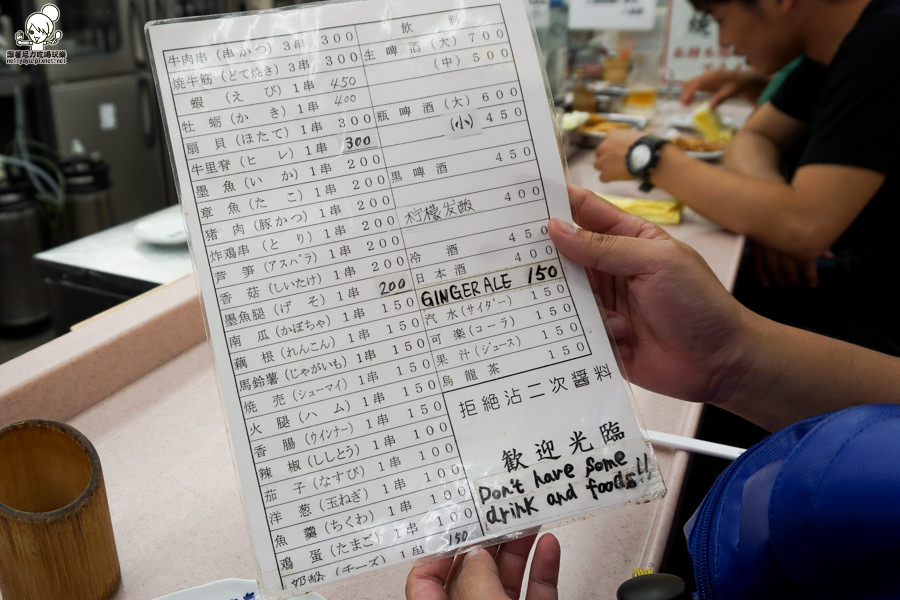 牛肉串 (串かつ) 3串 300
焼牛筋 (どて焼き) 3串 300
蝦 (えび) 1串 450
牡蛎 (かき) 1串 400
扇貝 (ほたて) 1串 300
牛里脊 (ヒレ) 1串 300
墨魚 (いか) 1串 200
章魚 (たこ) 1串 200
猪肉 (豚かつ) 1串 200
炸鶏串 (とり) 1串 200
芦笋 (アスパラ) 1串 200
香菇 (しいたけ) 1串 200
墨魚腿 (げそ) 1串 200
南瓜 (かぼちゃ) 1串 150
藕根 (れんこん) 1串 150
馬鈴薯 (じゃがいも) 1串 150
焼売 (シューマイ) 1串 150
火腿 (ハム) 1串 150
香腸 (ウインナー) 1串 150
辣椒 (ししとう) 1串 100
茄子 (なすび) 1串 100
洋葱 (玉ねぎ) 1串 100
魚羹 (ちくわ) 1串 100
鶏蛋 (たまご) 1串 100
(チーズ) 1串 150
飲料
生啤酒 (大) 700
(中) 500
瓶啤酒 (大) 600
(小) 450
黒啤酒 450
柠檬发酸 400
冷酒 450
日本酒 400
GINGER ALE 150
汽水 (サイダー) 150
可楽 (コーラ) 150
果汁 (ジュース) 150
烏龍茶 150
拒絶沾二次醤料
歓迎光臨
Don't have some
drink and foods!!
跟著尼力吃喝玩樂